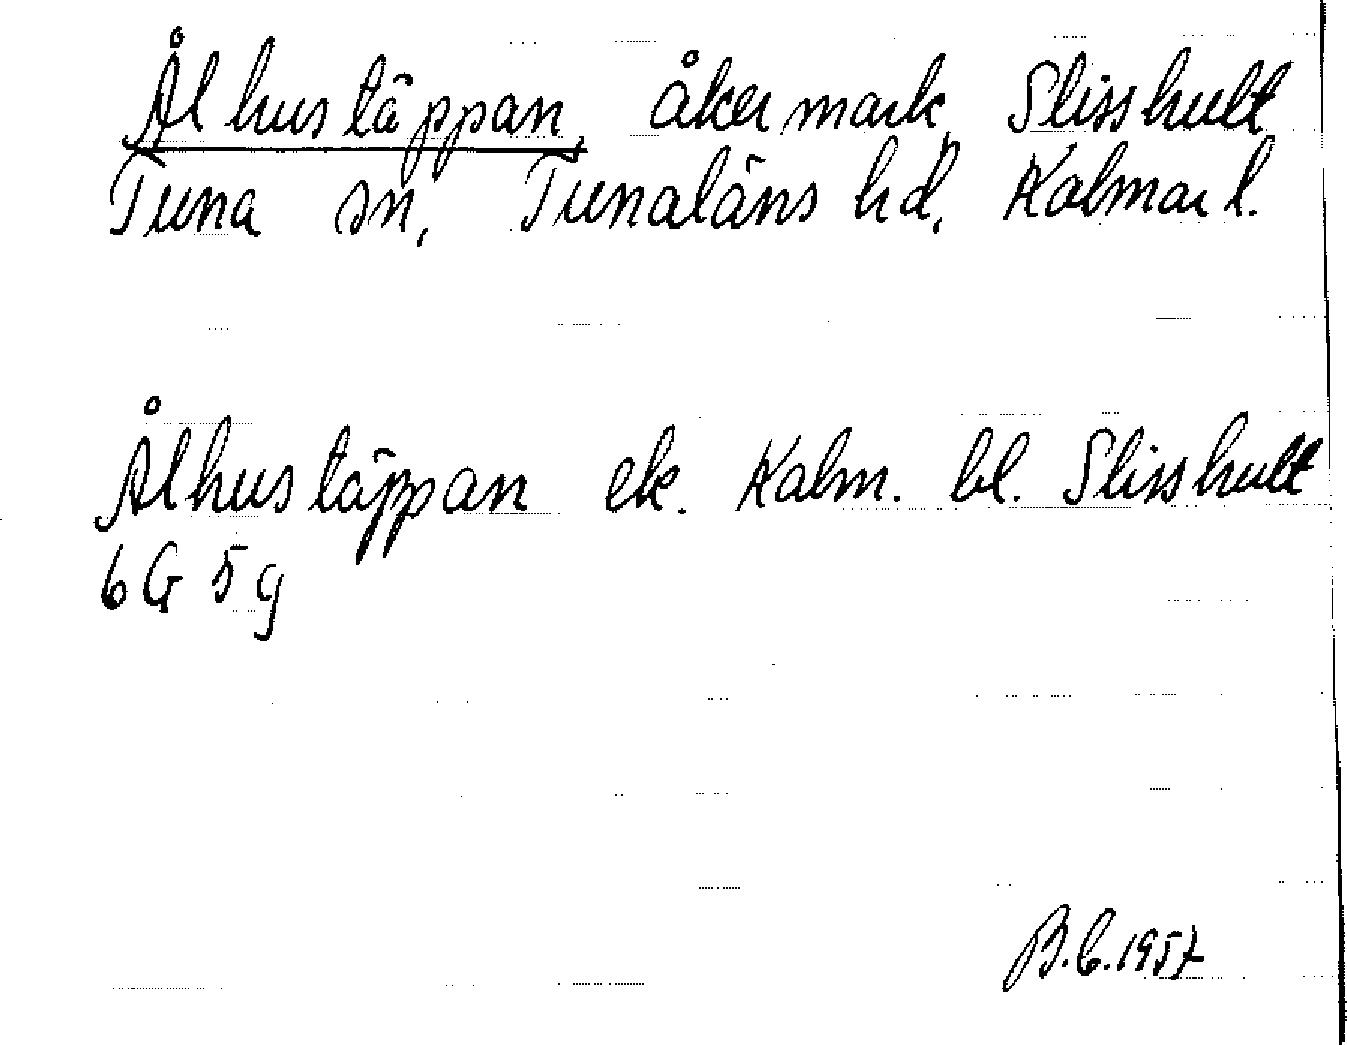 Ålhustäppan, åkermark, Slisshult,
Tuna sn, Tunaläns hd, Kalmar l.
Ålhustäppan ek. Kalm. bl. Slisshult
6G 5g
B.C. 1957